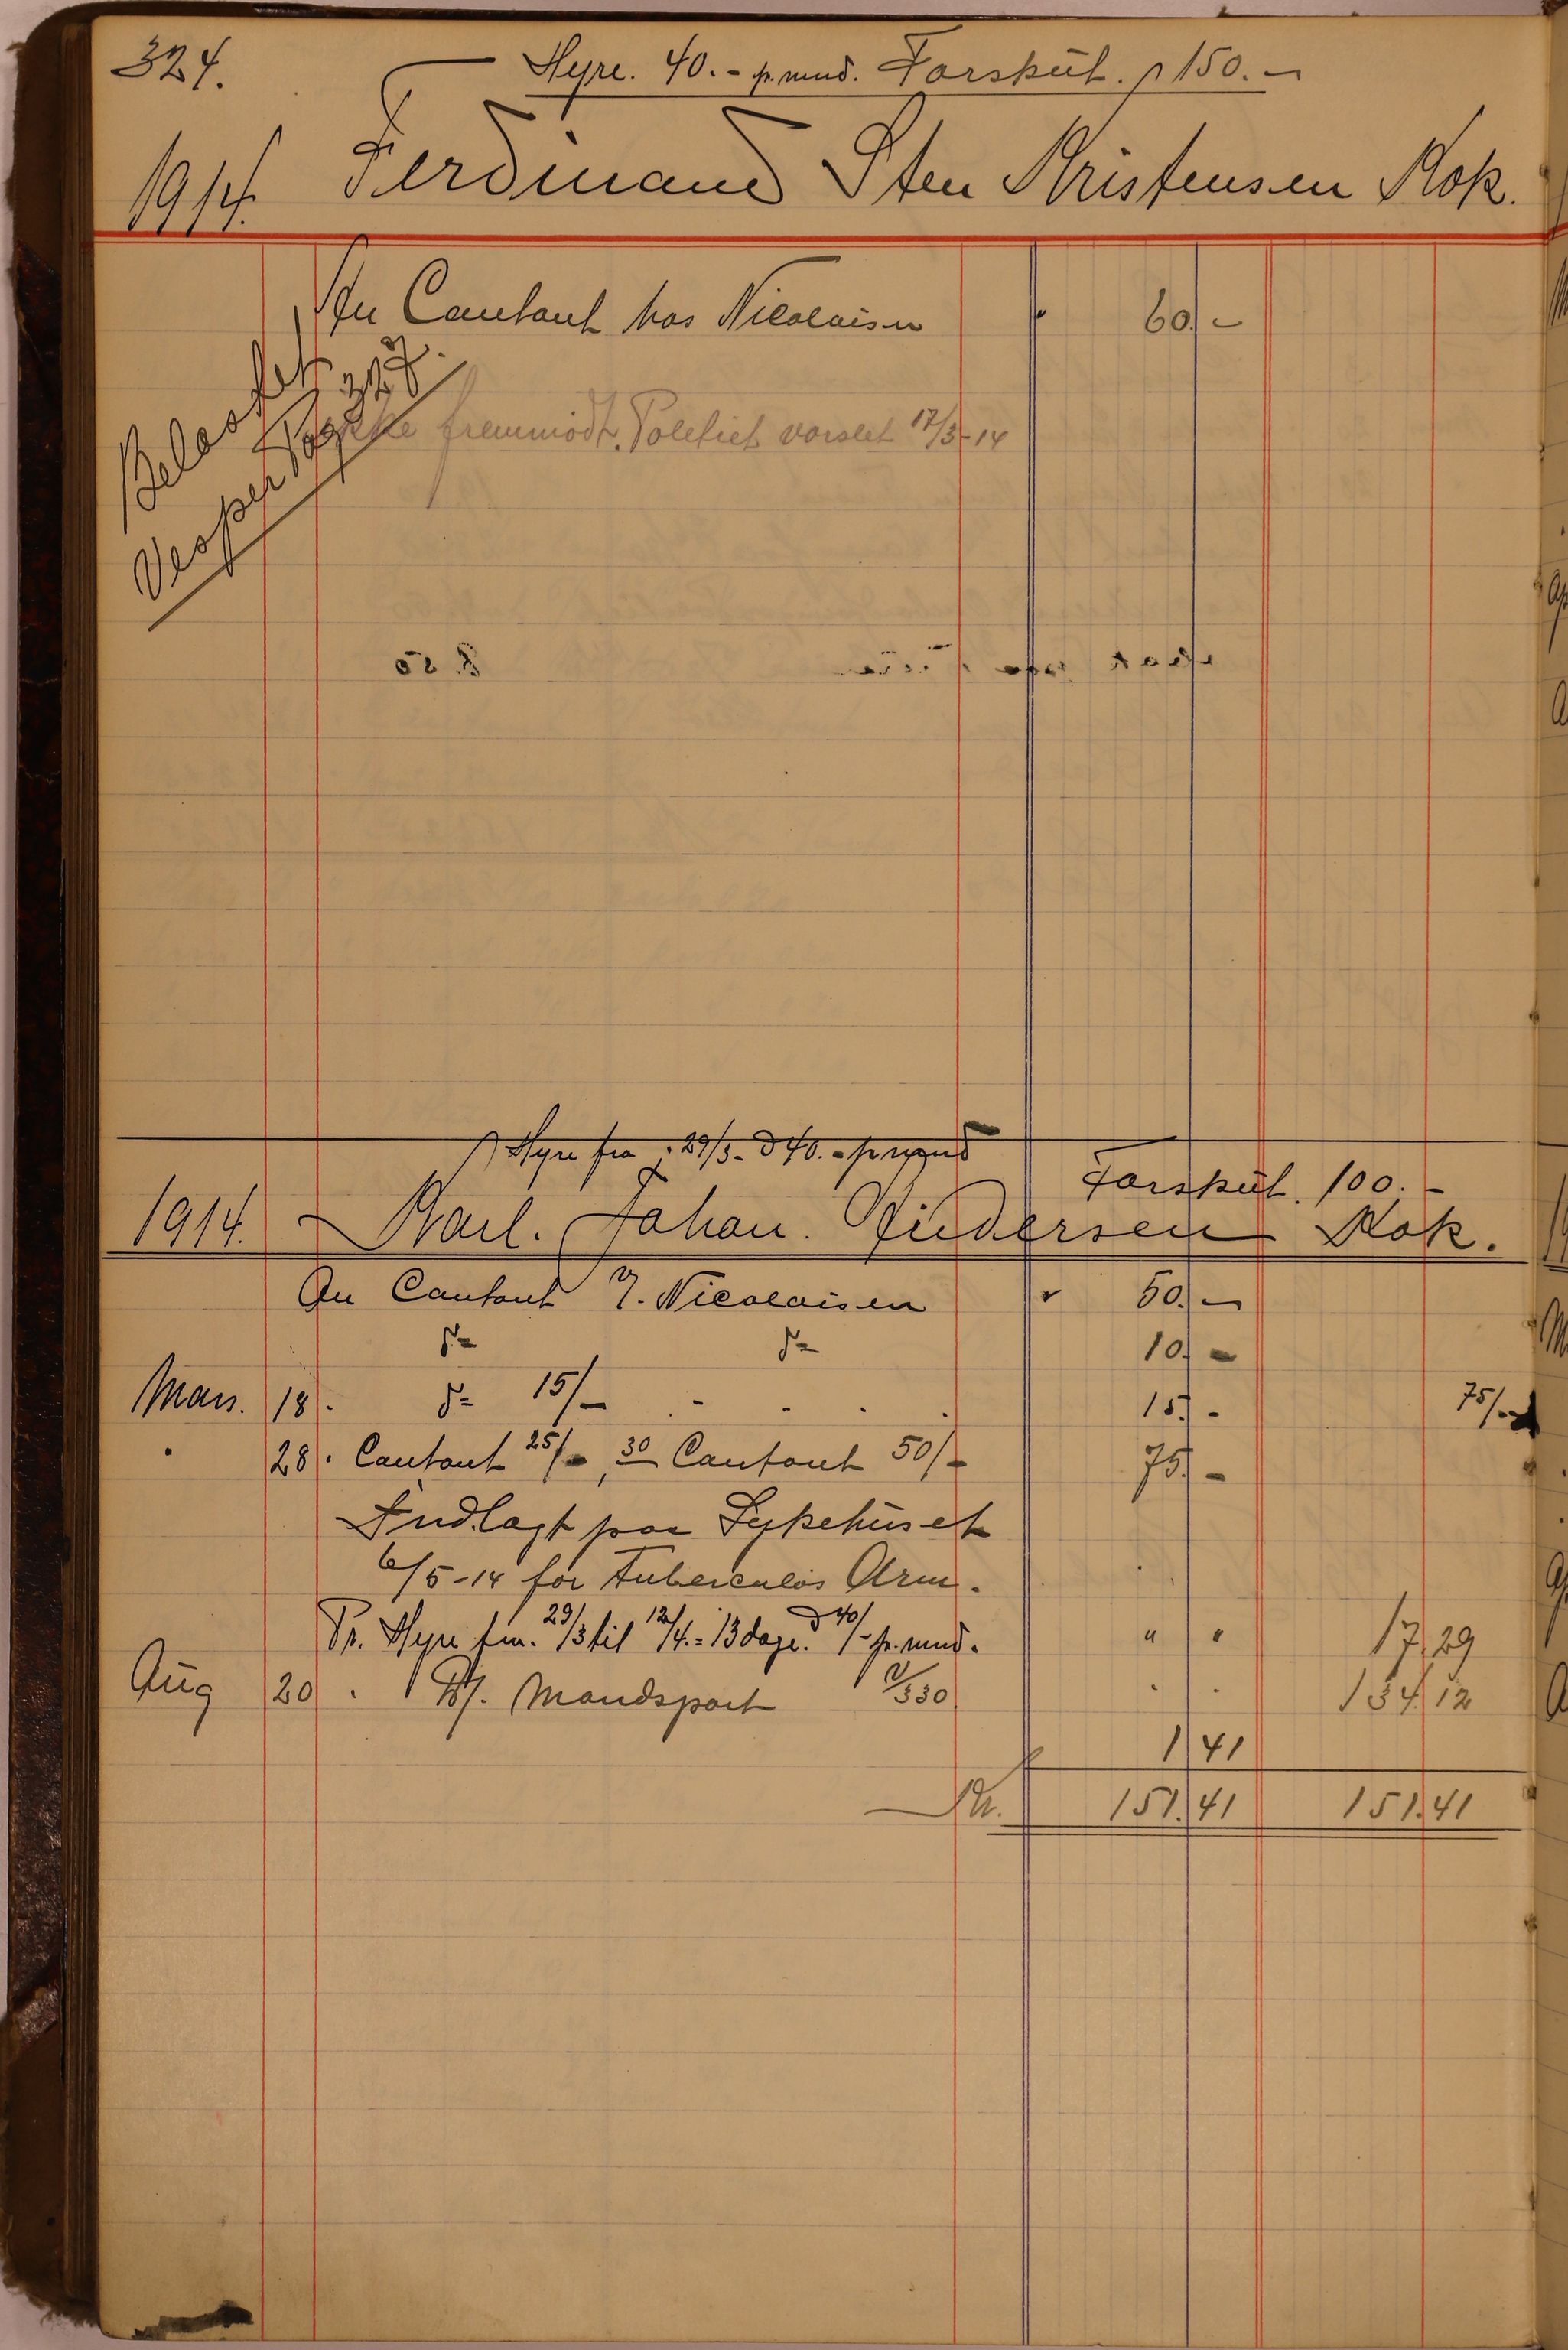 324.
Hyre. 40.- pr. mnd. Forsküt. 150.-
1914. Ferdinand Sten Kristensen Kok.
An Contant hos Nicolaisen 60.-
Belastet
Vesper Pag 327.
Ikke fremmödt. Politiet varslet 17/3-14
Hyre fra 29/3- 40.- pr mnd
Forsküt. 100.-
1914. Karl. Johan. Andersen Kok.
An Contant Nicolaisen 50.-
do do 10.-
Mars. 18. do 15/- 15.- 75/-
" 28. Contant 25/-, 30 Contant 50/- 75.-
Indlagt paa Sykehüset
6/5-14 for Tuberculös Arm.
Pr. Hyre fra. 29/3 til 12/4. = 13 dage. 40/- pr. mnd. " " 17.29
Aug 20 " Mandspart 330 " " 134.12
1.41
Kr. 151.41 151.41